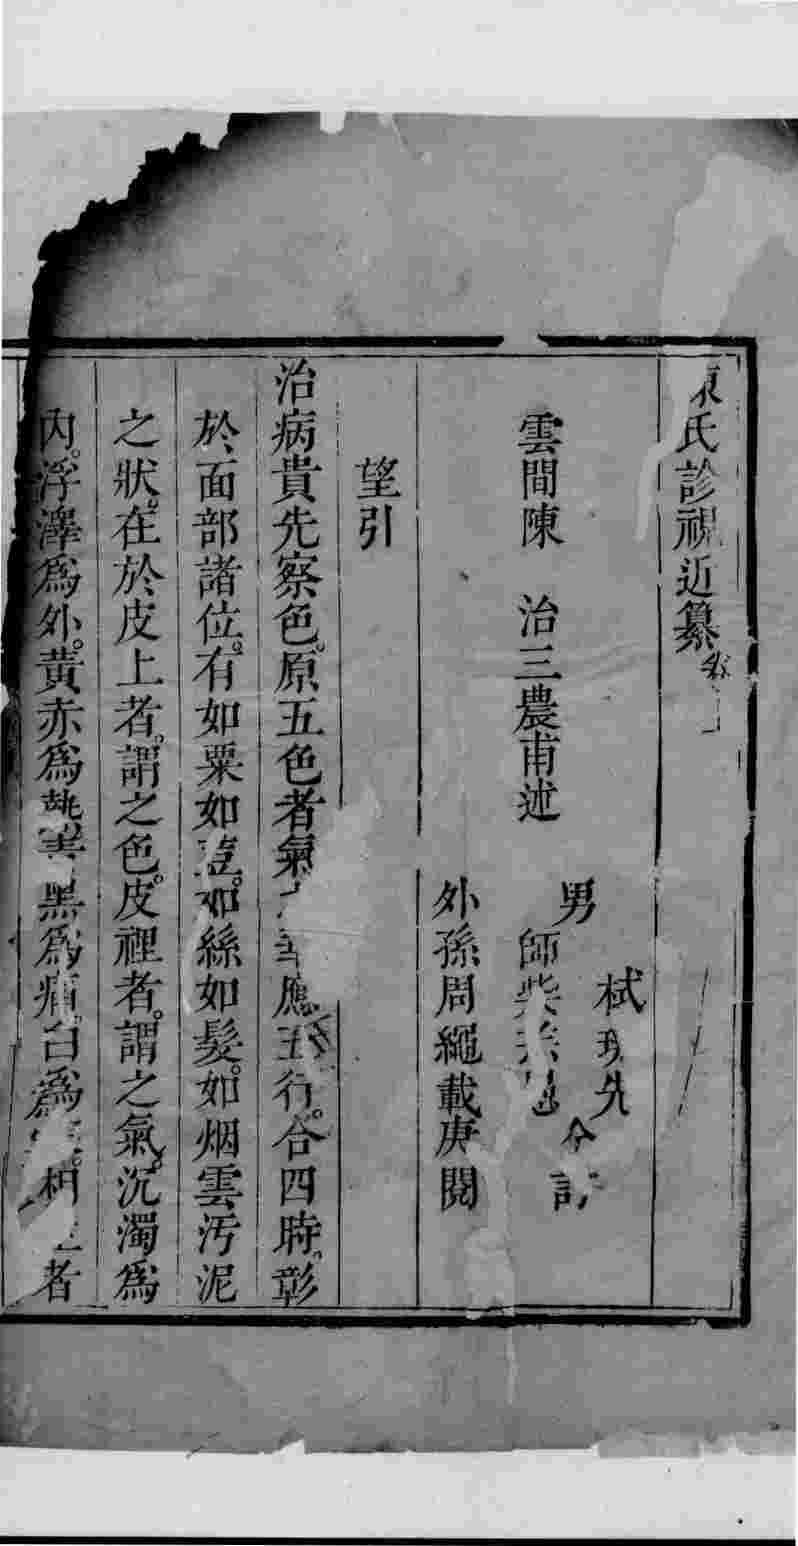 氏診視近纂卷上
雲間陳　治三農甫述
男
栻
師柴
外孫周繩載庚閱
望引
治病貴先察色。原五色者氣華應五行。合四時。彰
於面部諸位。有如粟如荳。如絲如髮。如烟雲汚泥
之狀。在於皮上者。謂之色。皮裡者。謂之氣。沉濁爲
內。浮澤爲外。黃赤爲熱黑爲痛。白爲者